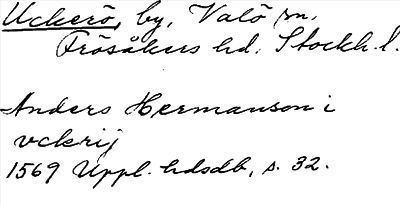 Uckerö, by, Valö sn,
Frösåkers hd. Stockh. l.
Anders Hermanson i
vckrij
1569 Uppl. hdsdb, s. 32.